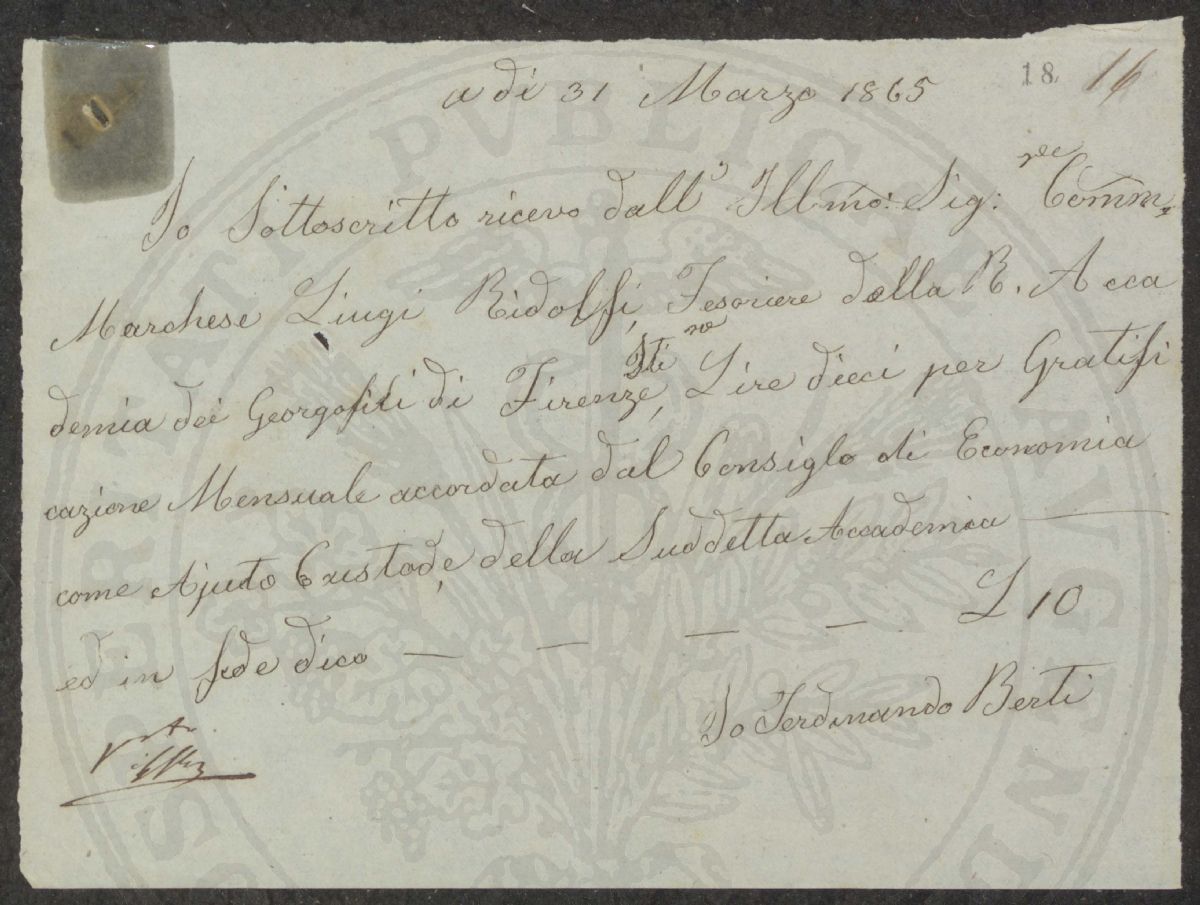 18 16
a di 31 Marzo 1865
Io Sottoscritto ricevo dall' Illmo: Sig: Comm.re
Marchese Liugi Ridolfi, Tesoriere della R. Acca
demia dei Georgofili di Firenze, Itne Lire dieci per Gratifi
cazione Mensuale accordata dal Consiglo di Economia
come Ajuto Custode, della Suddetta Accademia —
ed in fede dico — — — — L 10
Io Ferdinando Berti